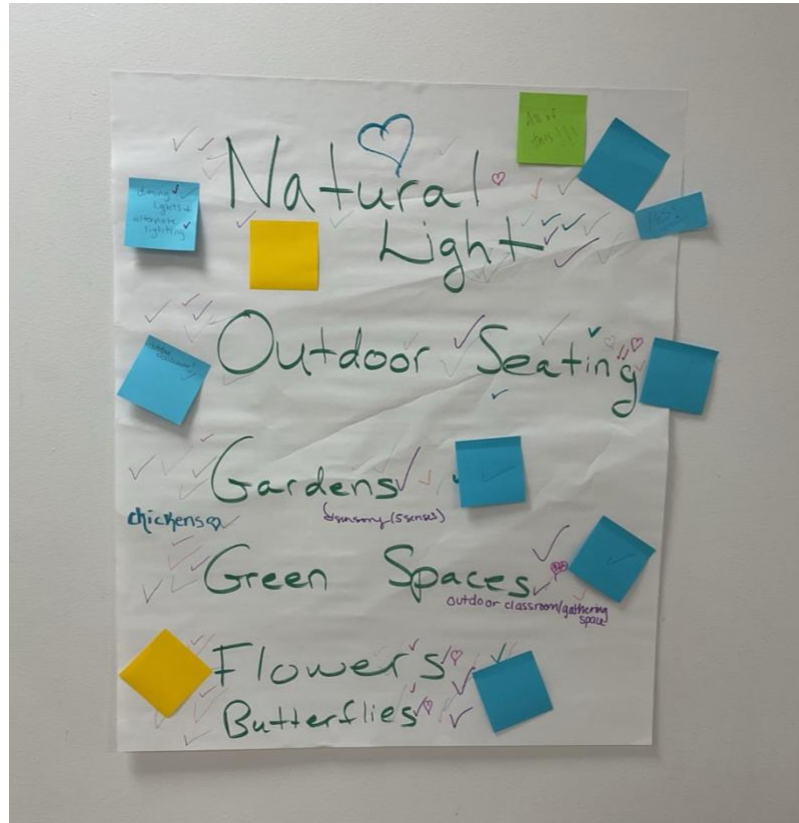 All of this!!!
Natural
Light
dimming
lights +
alternate
lighting
Yes!
Outdoor Seating
Gardens
chickens
sensory (5 senses)
Green Spaces
outdoor classroom/gathering
space
Flowers
Butterflies